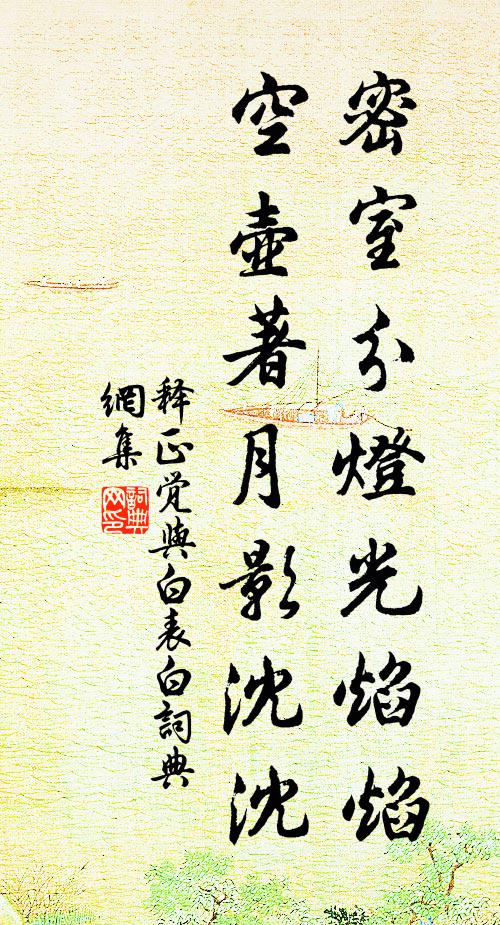 密室分燈光焰焰
空壺著月影沈沈
释正觉與白表白詞典
網集
詞典
网印